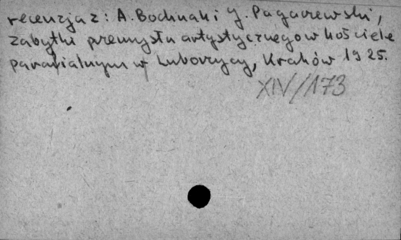 recenzja z: A. Bochnak i J. Pagaczewski,
zabytki przemysłu artystycznego w kościele
parafialnym w Luborzycy, Kraków 1925.
XIV/173